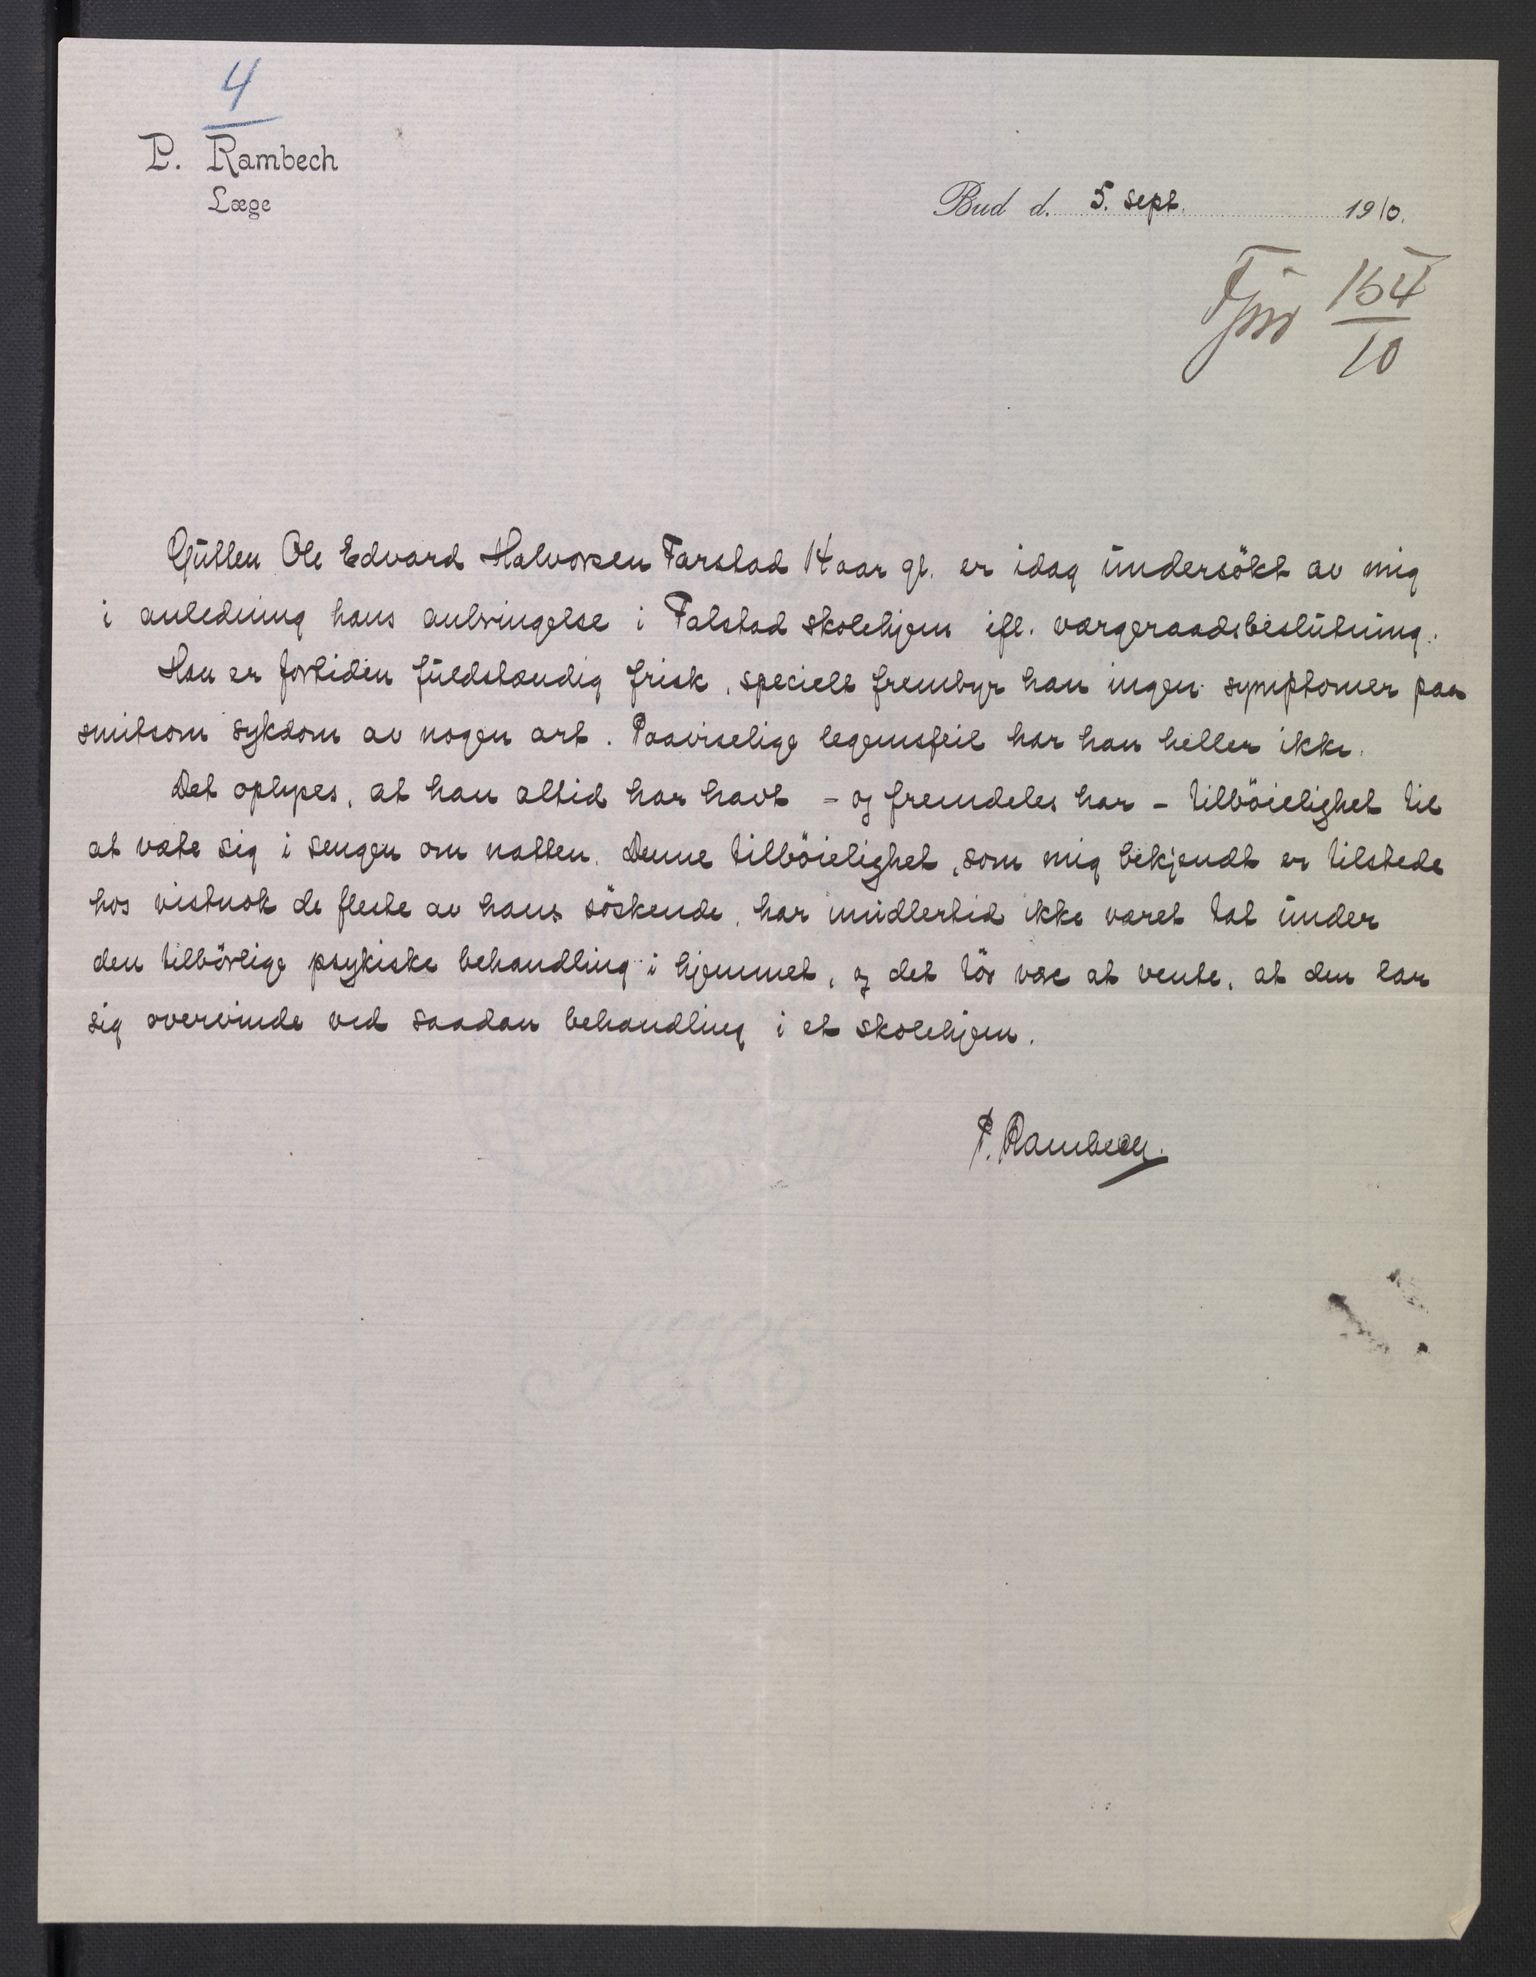 4
P. Rambech
Læge
Bud d. 5. sept. 1910.
164
10
Gutten Ole Edvard Halvorsen Farstad 14 aar gl. er idag undersökt av mig
i anledning hans anbringelse i Falstad skolehjem ifl. værgeraadsbeslutning.
Han er fortiden fuldstændig frisk, specielt frembyr han ingen symptomer paa
smitsom sykdom av nogen art. Paaviselige legemsfeil har han heller ikke.
Det oplyses, at han altid har havt - og fremdeles har - tilböielighet til
at væte sig i sengen om natten. Denne tilböielighet, som mig bekjendt er tilstede
hos vistnok de fleste av hans söskende, har imidlertid ikke været tat under
den tilbörlige psykiske behandling i hjemmet, og det tör være at vente, at den lar
sig overvinde ved saadan behandling i et skolehjem.
P. Rambech.